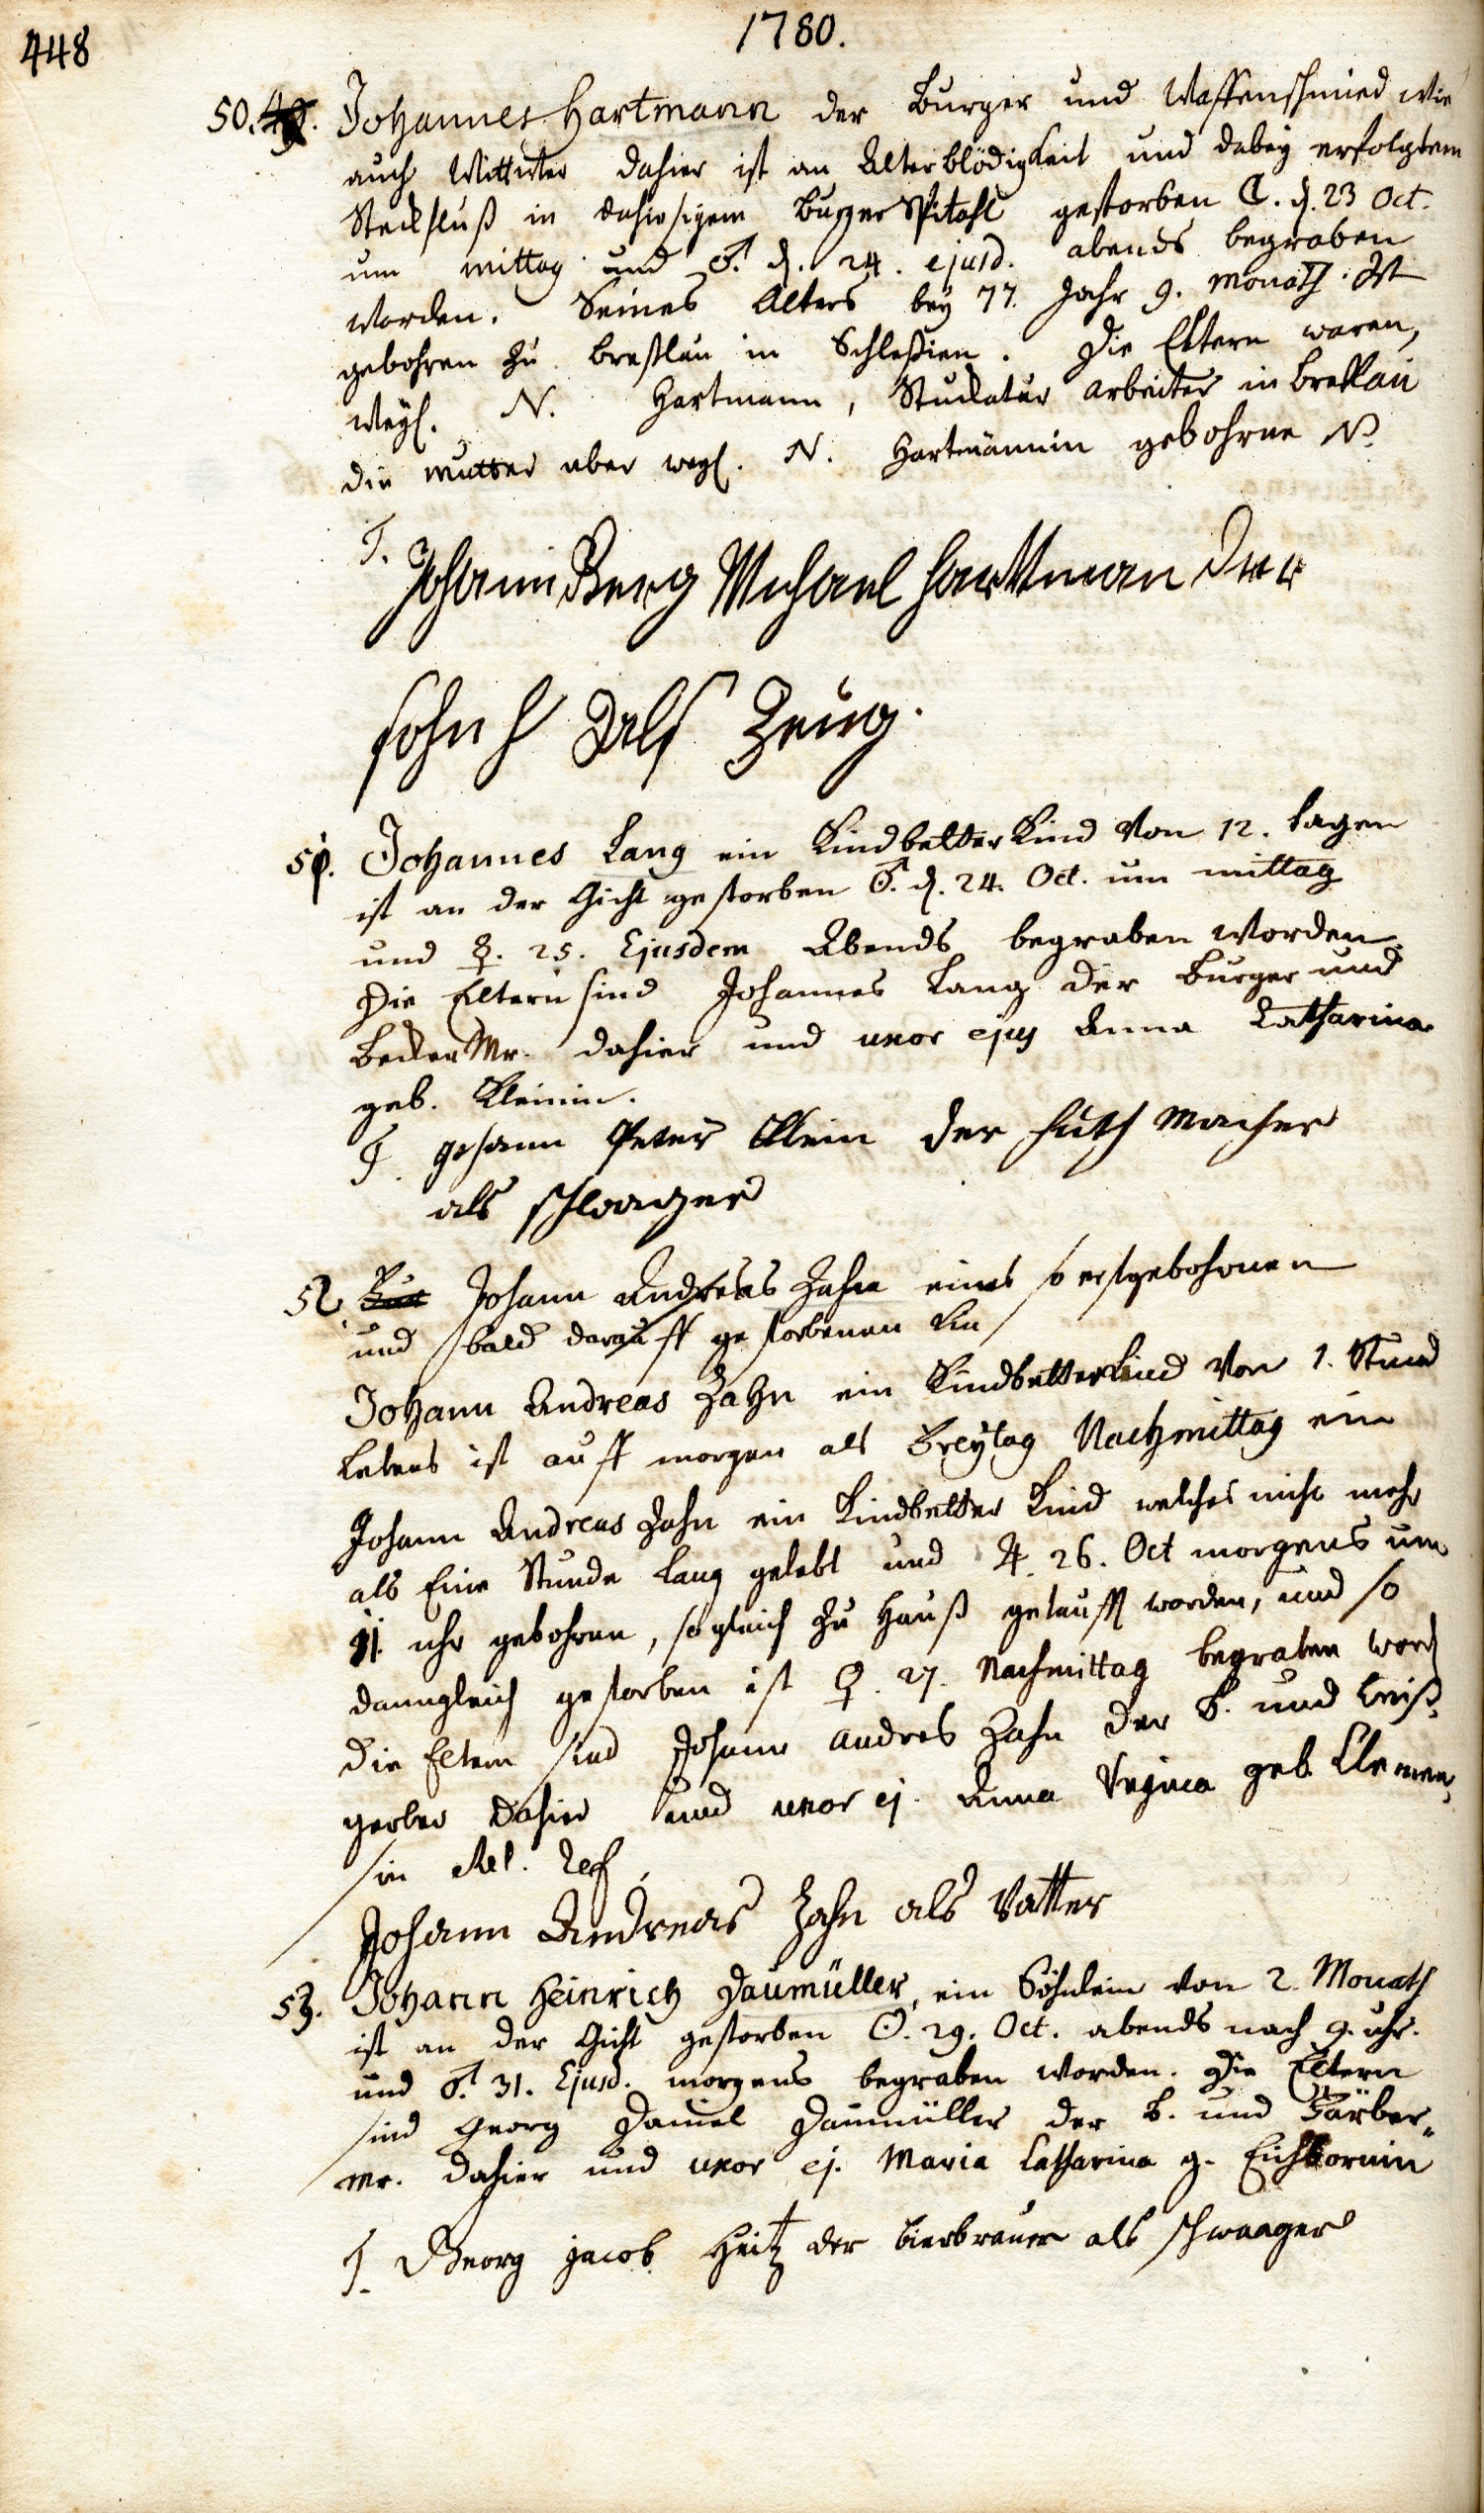 448
1780.
50. 49. Johannes Hartmann der Burger und Waffenschmied wie
auch Wittwer dahier ist an Alterblödigkeit und dabey erfolgtem
Steckfluß in dahiesigem Burger Spitahl gestorben ☾. d. 23 Oct.
um mittag und ♂. d. 24. ejusd. abends begraben
worden. Seines Alters bey 77. Jahr 9. Monath. Ist
gebohren zu Breßlau in Schleßien. Die Eltern waren,
weyl. N. Hartmann, Stuckatur arbeiter in Breßlau
die Mutter aber weyl. N. Hartmännin gebohrne N.
T. Johann Georg Michael Harttman der
sohn Als Zeug.
51. Johannes Lang ein Kindbetter Kind von 12. tagen
ist an der Gicht gestorben ♂. d. 24. Oct. um mittag
und ☿. 25. Ejusdem Abends begraben worden.
Die Eltern sind Johannes Lang der Burger und
Becker Mr. dahier und uxor ejus Anna Catharina
geb. Kleinin.
T. Johann Peter Klein der Huth Macher
als schwager
52. Johann Andreas Zahn eines so erstgebohrnen
und bald darauff gestorbenen Kin
Johann Andreas Zahn ein Kindbetterkind von 1. Stund
Lebens ist auff morgen als Freytag Nachmittag ein
Johann Andreas Zahn ein Kindbetter Kind welches nicht mehr
als Eine Stunde lang gelebt und ♃. 26. Oct morgens um
11. uhr gebohren, sogleich zu Hauß getaufft worden, und so
danngleich gestorben ist ♀. 27. Nachmittag begraben word
die Eltern sind Johann Andres Zahn der B. und Weiß-
gerber dahier und uxor ej. Anna Regina geb. Clemen-
sin Rel. Ref.
Johann Andreas Zahn als Vatter
53. Johann Heinrich Daumüller, ein Söhnlein von 2. Monath
ist an der Gicht gestorben ☉. 29. Oct. abends nach 9. uhr.
und ♂. 31. Ejusd. morgens begraben worden. Die Eltern
sind Georg Daniel Daumüller der B. und Färber-
Mr. dahier und uxor ej. Maria Catharina g. Eichkornin
T. Georg Jacob Heitz der bierbrauer als schwaager